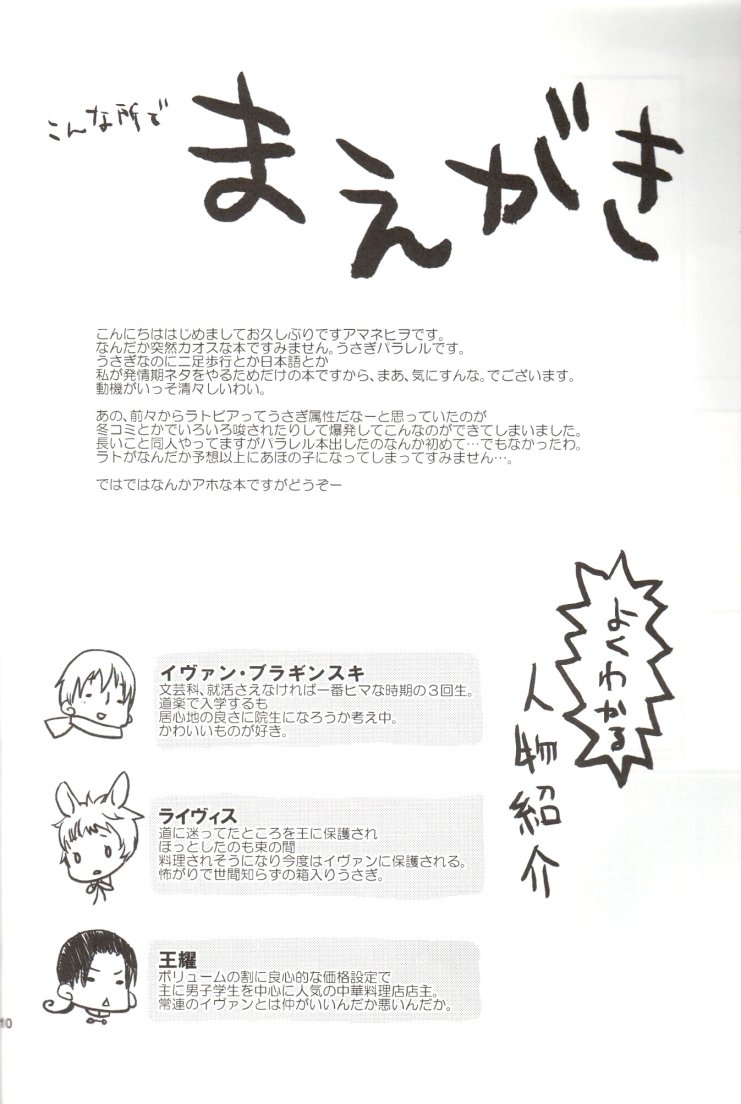 こんな所で
まえがき
こんにちははじめましてお久しぶりですアマネヒヲです。
なんだか突然カオスな本ですみません。うさぎパラレルです。
うさぎなのに二足歩行とか日本語とか
私が発情期ネタをやるためだけの本ですから、まあ、気にすんな。でございます。
動機がいっそ清々しいわい。
あの、前々からラトビアってうさぎ属性だなーと思っていたのが
冬コミとかでいろいろ唆されたりして爆発してこんなのができてしまいました。
長いこと同人やってますがパラレル本出したのなんか初めて…でもなかったわ。
ラトがなんだか予想以上にあほの子になってしまってすみません…。
ではではなんかアホな本ですがどうぞー
よくわかる
人物紹介
イヴァン・ブラギンスキ
文芸科、就活さえなければ一番ヒマな時期の3回生。
道楽で入学するも
居心地の良さに院生になろうか考え中。
かわいいものが好き。
ライヴィス
道に迷ってたところを王に保護され
ほっとしたのも束の間
料理されそうになり今度はイヴァンに保護される。
怖がりで世間知らずの箱入りうさぎ。
王耀
ボリュームの割に良心的な価格設定で
主に男子学生を中心に人気の中華料理店店主。
常連のイヴァンとは仲がいいんだか悪いんだか。
10